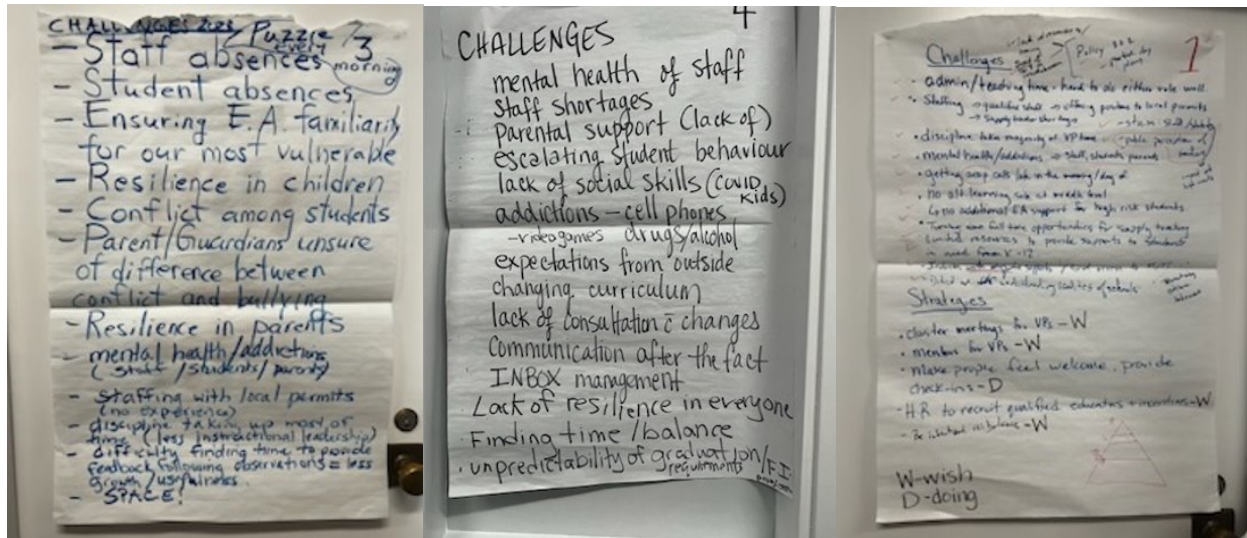 CHALLENGES
Puzzle 3
every
morning
- Staff absences
- Student absences
- Ensuring E.A. familiarity
for our most vulnerable
- Resilience in children
- Conflict among students
- Parent/Guardians unsure
of difference between
conflict and bullying
- Resilience in parents
- mental health/addictions
(staff/students/parents)
- staffing with local permits
(no experience)
- discipline taking up most of
time (less instructional leadership)
- difficulty finding time to provide
feedback following observations = less
growth/usefulness.
- SPACE!
4
CHALLENGES
mental health of staff
staff shortages
parental support (lack of)
escalating student behaviour
lack of social skills (COVID
kids)
addictions - cell phones
- videogames drugs/alcohol
expectations from outside
changing curriculum
lack of consultation c̄ changes
Communication after the fact
INBOX management
Lack of resilience in everyone
· Finding time/balance
· unpredictability of graduation/FI
requirements
1
Challenges
Policy
• admin/teaching time - hard to do either role well
• Staffing → qualified staff → offering positions to local permits
→ supply teacher shortage
• discipline take majority of VP time
• mental health/addictions → staff, students, parents
• getting coop calls late in the morning/day of
• no alt learning site at middle level
↳ no additional EA support for high risk students
• Turning down full time opportunities for supply teaching
Limited resources to provide supports to students
in need from K-12
Strategies
• cluster meetings for VPs - W
• mentors for VPs - W
• make people feel welcome, provide
check-ins - D
- HR to recruit qualified educators + incentives - W
W-wish
D-doing